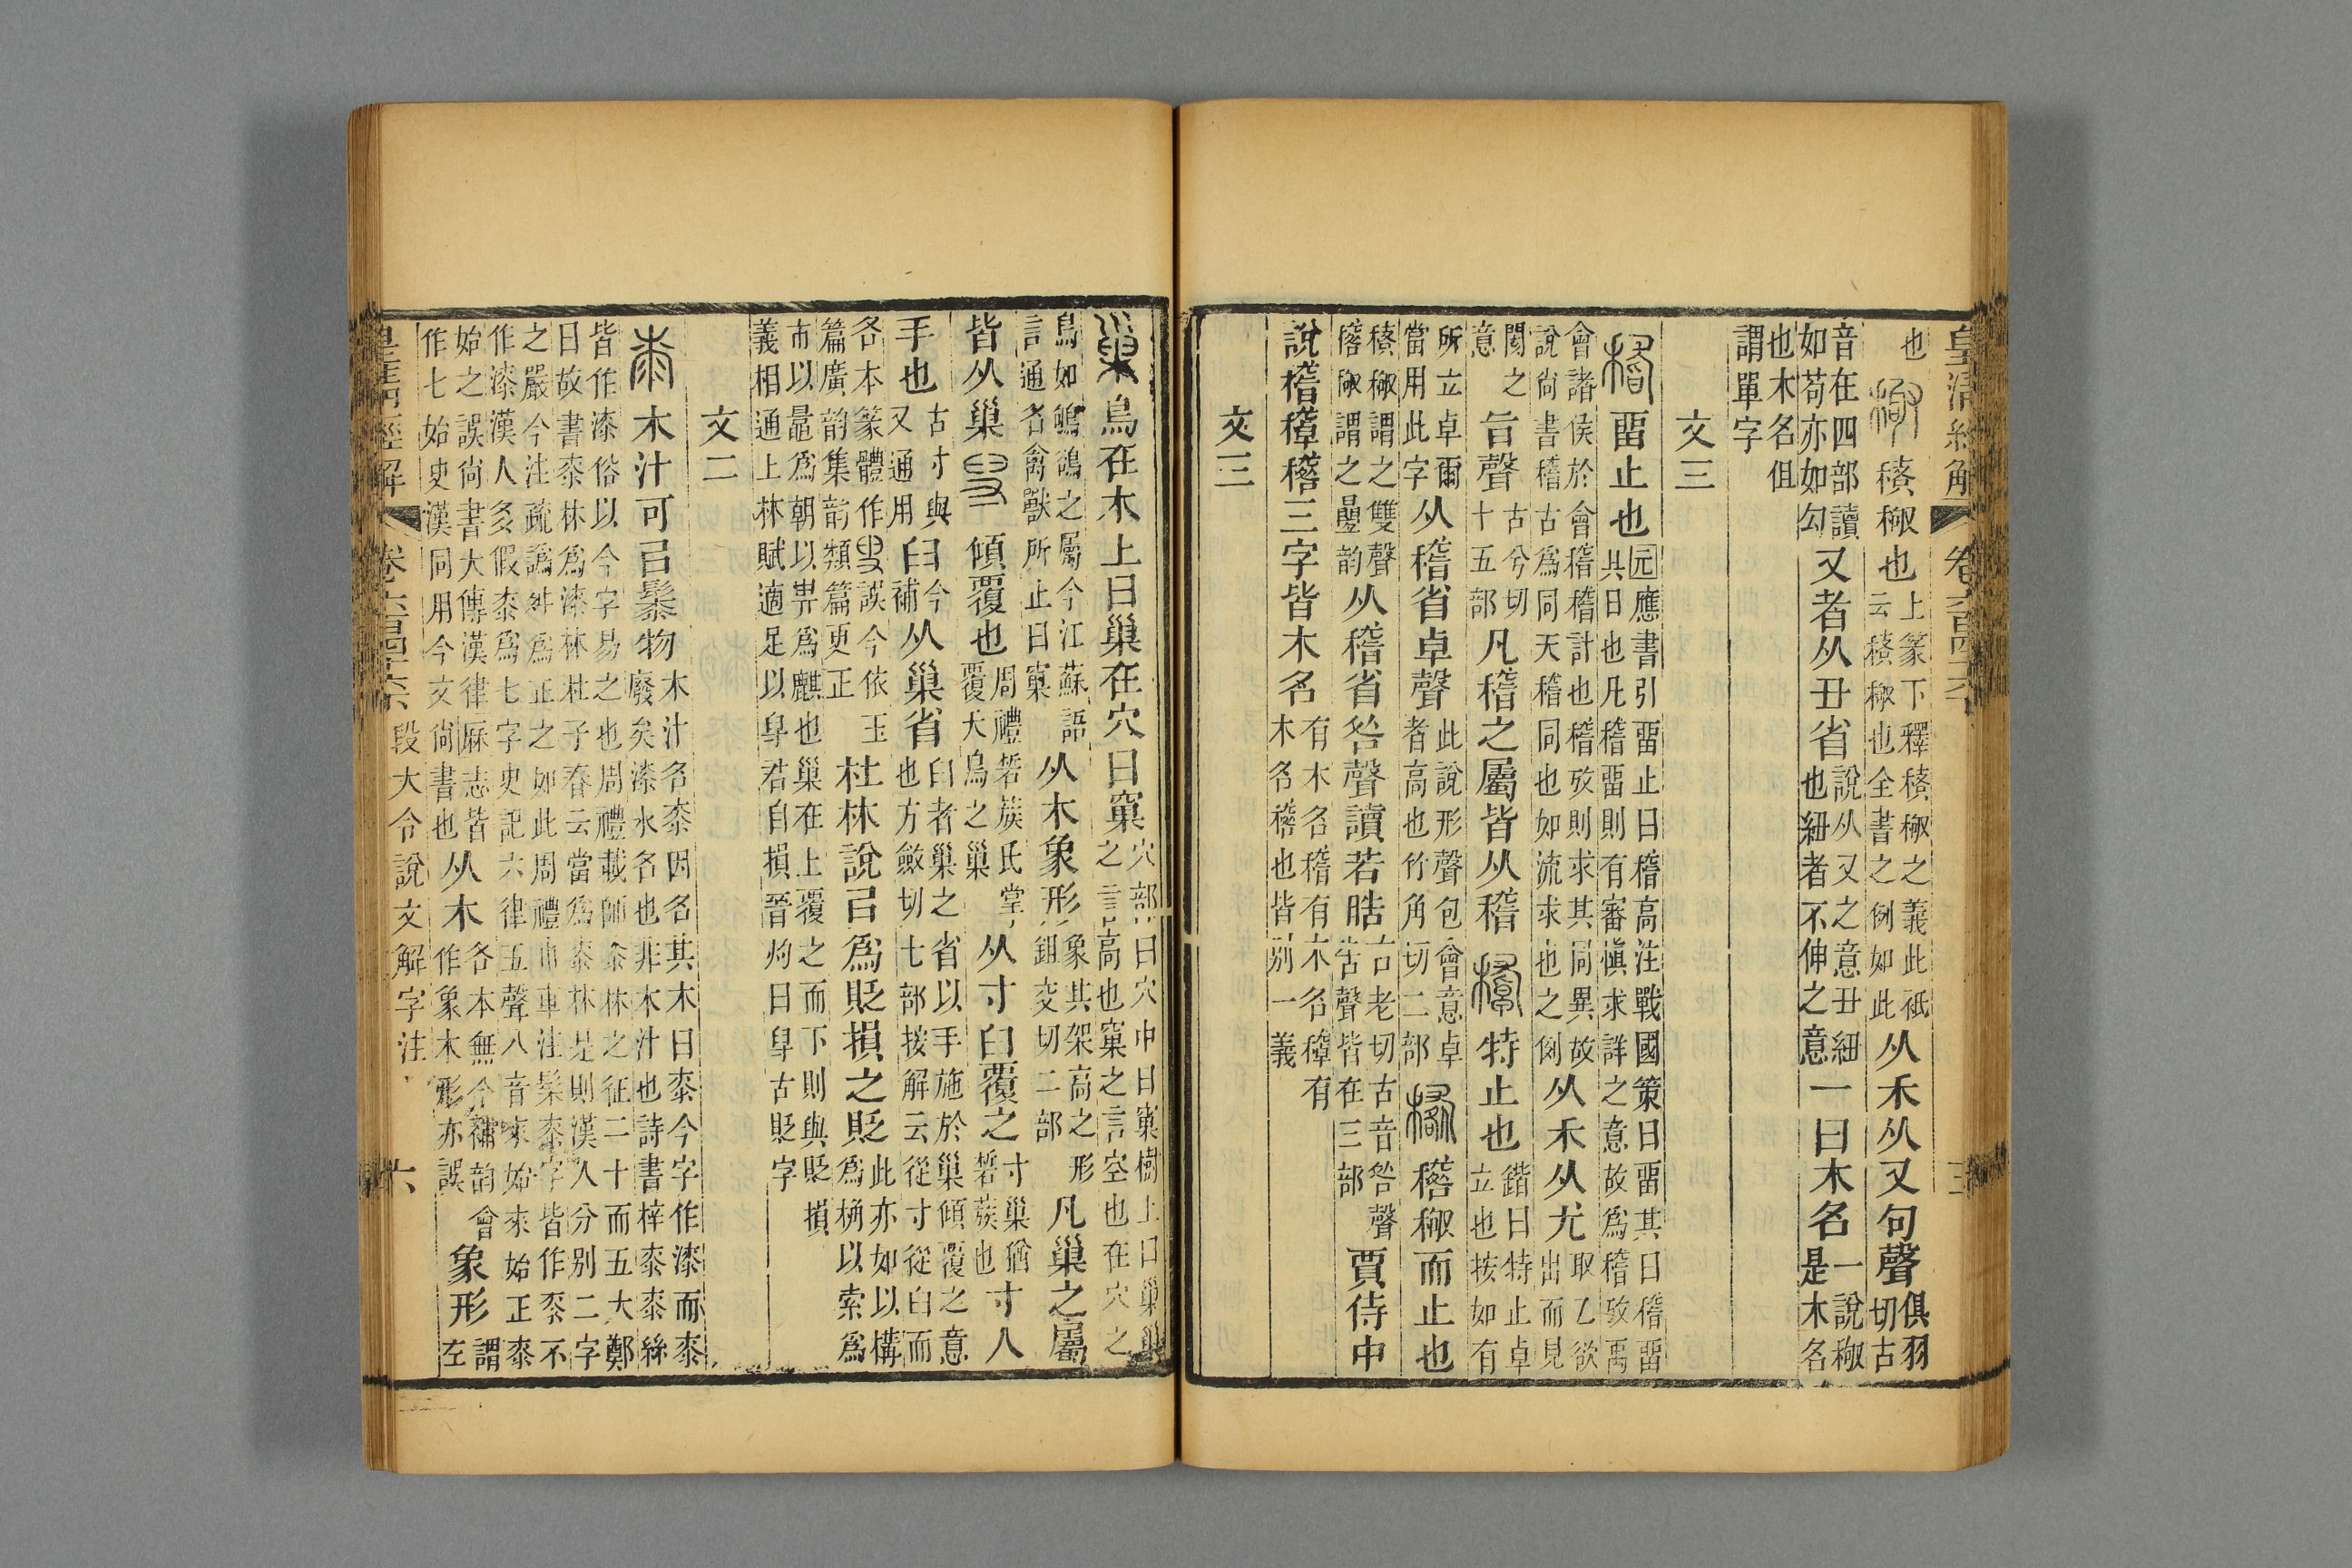 皇清經解 卷六百四十六
也 𥝌 䅩𥡴也上篆下釋䅩𥡴之義此祇云䅩𥡴也全書之例如此从禾从又句聲俱羽切古
音在四部讀如苟亦如勾又者从丑省說从又之意丑紐也紐者不伸之意一曰木名一說𥡴是木名
也木名俱謂單字
文三
稽 畱止也玄應書引畱止曰稽高注戰國策曰畱其日稽畱其日也凡稽畱則有審愼求詳之意故爲稽攷禹
會諸侯於會稽稽計也稽攷則求其同異故說尙書稽古爲同天稽同也如流求也之例从禾从尤取乙欲出而見
閡之意旨聲古兮切十五部凡稽之屬皆从稽 𥡜 特止也鍇曰特止卓立也按如有
所立卓爾當用此字从稽省卓聲此說形聲包會意卓者高也竹角切二部 𥢔 䅩𥡴而止也
䅩𥡴謂之雙聲𥢔𥡴謂之曡韵从稽省咎聲讀若晧古老切古音咎聲告聲皆在三部賈侍中
說稽𥡜𥢔三字皆木名有木名稽有木名𥡜有木名𥢔也皆別一義
文三
巢 鳥在木上曰巢在穴曰窠穴部曰穴中曰窠樹上曰巢巢之言高也窠之言空也在穴之
鳥如鴝鵒之屬今江蘇語言通名禽獸所止曰窠从木象形象其架高之形鉏交切二部凡巢之屬
皆从巢 𠬛 傾覆也周禮硩蔟氏掌覆夭鳥之巢从寸臼覆之寸巢猶硩蔟也寸人
手也古寸與又通用臼今補从巢省臼者巢之省以手施於巢傾覆之意也方斂切七部按解云從寸從臼而
各本篆體作㕜誤今依玉篇廣韵集韵類篇更正杜林說㠯爲貶損之貶此亦如以構爲桷以索爲
巿以鼂爲朝以畀爲麒也巢在上覆之而下則與貶損義相通上林賦適足以㝵君自損晉灼曰㝵古貶字
文二
桼 木汁可㠯䰍物木汁名桼因名其木曰桼今字作漆而桼廢矣漆水名也非木汁也詩書梓桼桼絲
皆作漆俗以今字易之也周禮載師桼林之征二十而五大鄭曰故書桼林爲漆林杜子春云當爲桼林是則漢人分別二字
之嚴今注疏譌舛爲正之如此周禮巾車注髤桼字皆作桼不作漆漢人多假桼爲七字史記六律五聲八音來始來始正桼
始之誤尙書大傳漢律厤志皆作七始史漢同用今文尙書也从木各本無今補韵會作象木形亦誤象形謂左
皇清經解 卷六百四十六 段大令說文解字注 六